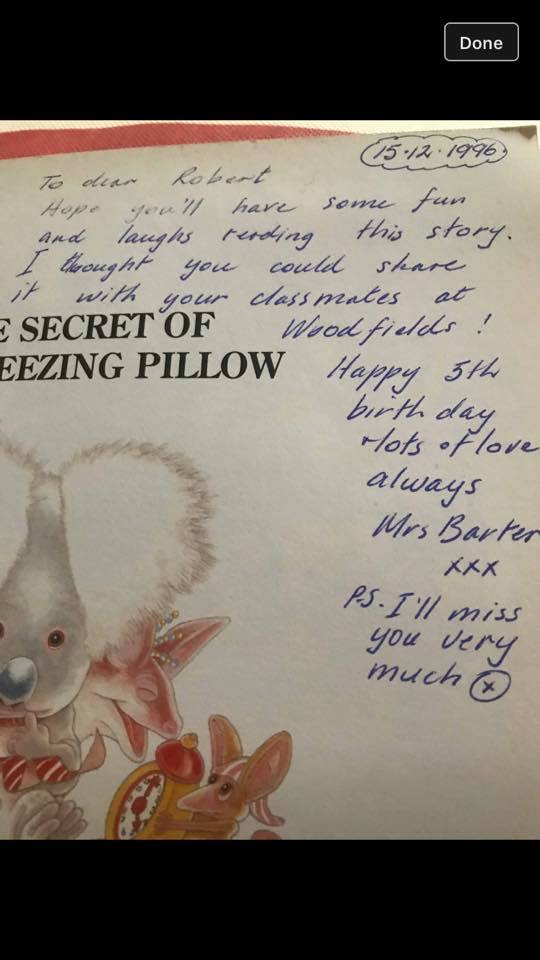 Done
15·12·1996
To dear Robert
Hope you'll have some fun
and laughs reading this story.
I thought you could share
it with your classmates at
Woodfields !
E SECRET OF
EEZING PILLOW
Happy 5th
birthday
+lots of love
always
Mrs Barter
xxx
P.S. I'll miss
you very
much x